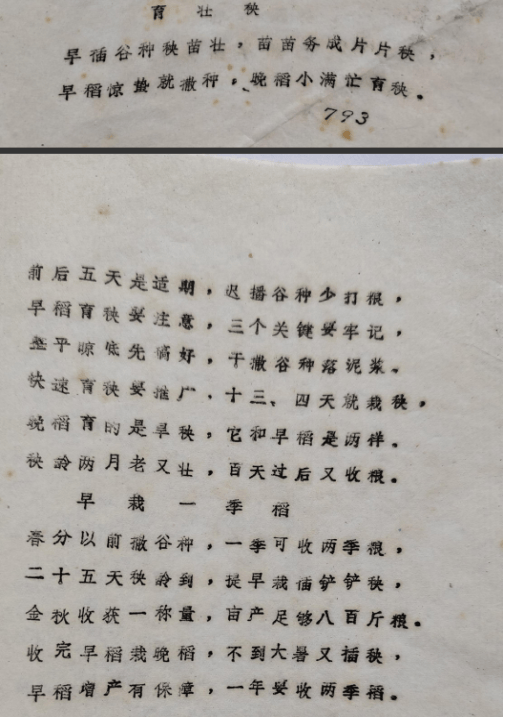 育 壮 秧
早插谷种秧苗壮，苗苗务成片片秧，
早稻惊蛰就撒种，晚稻小满忙育秧。
793
前后五天是适期，迟播谷种少打粮，
早稻育秧要注意，三个关键要牢记，
垄平晾底先搞好，干撒谷种落泥浆。
快速育秧要推广，十三、四天就栽秧，
晚稻育的是旱秧，它和早稻是两样。
秧龄两月老又壮，百天过后又收粮。
早 栽 一 季 稻
春分以前撒谷种，一季可收两季粮，
二十五天秧龄到，提早栽插铲铲秧，
金秋收获一称量，亩产足够八百斤粮。
收完早稻栽晚稻，不到大暑又插秧，
早稻增产有保障，一年要收两季稻。